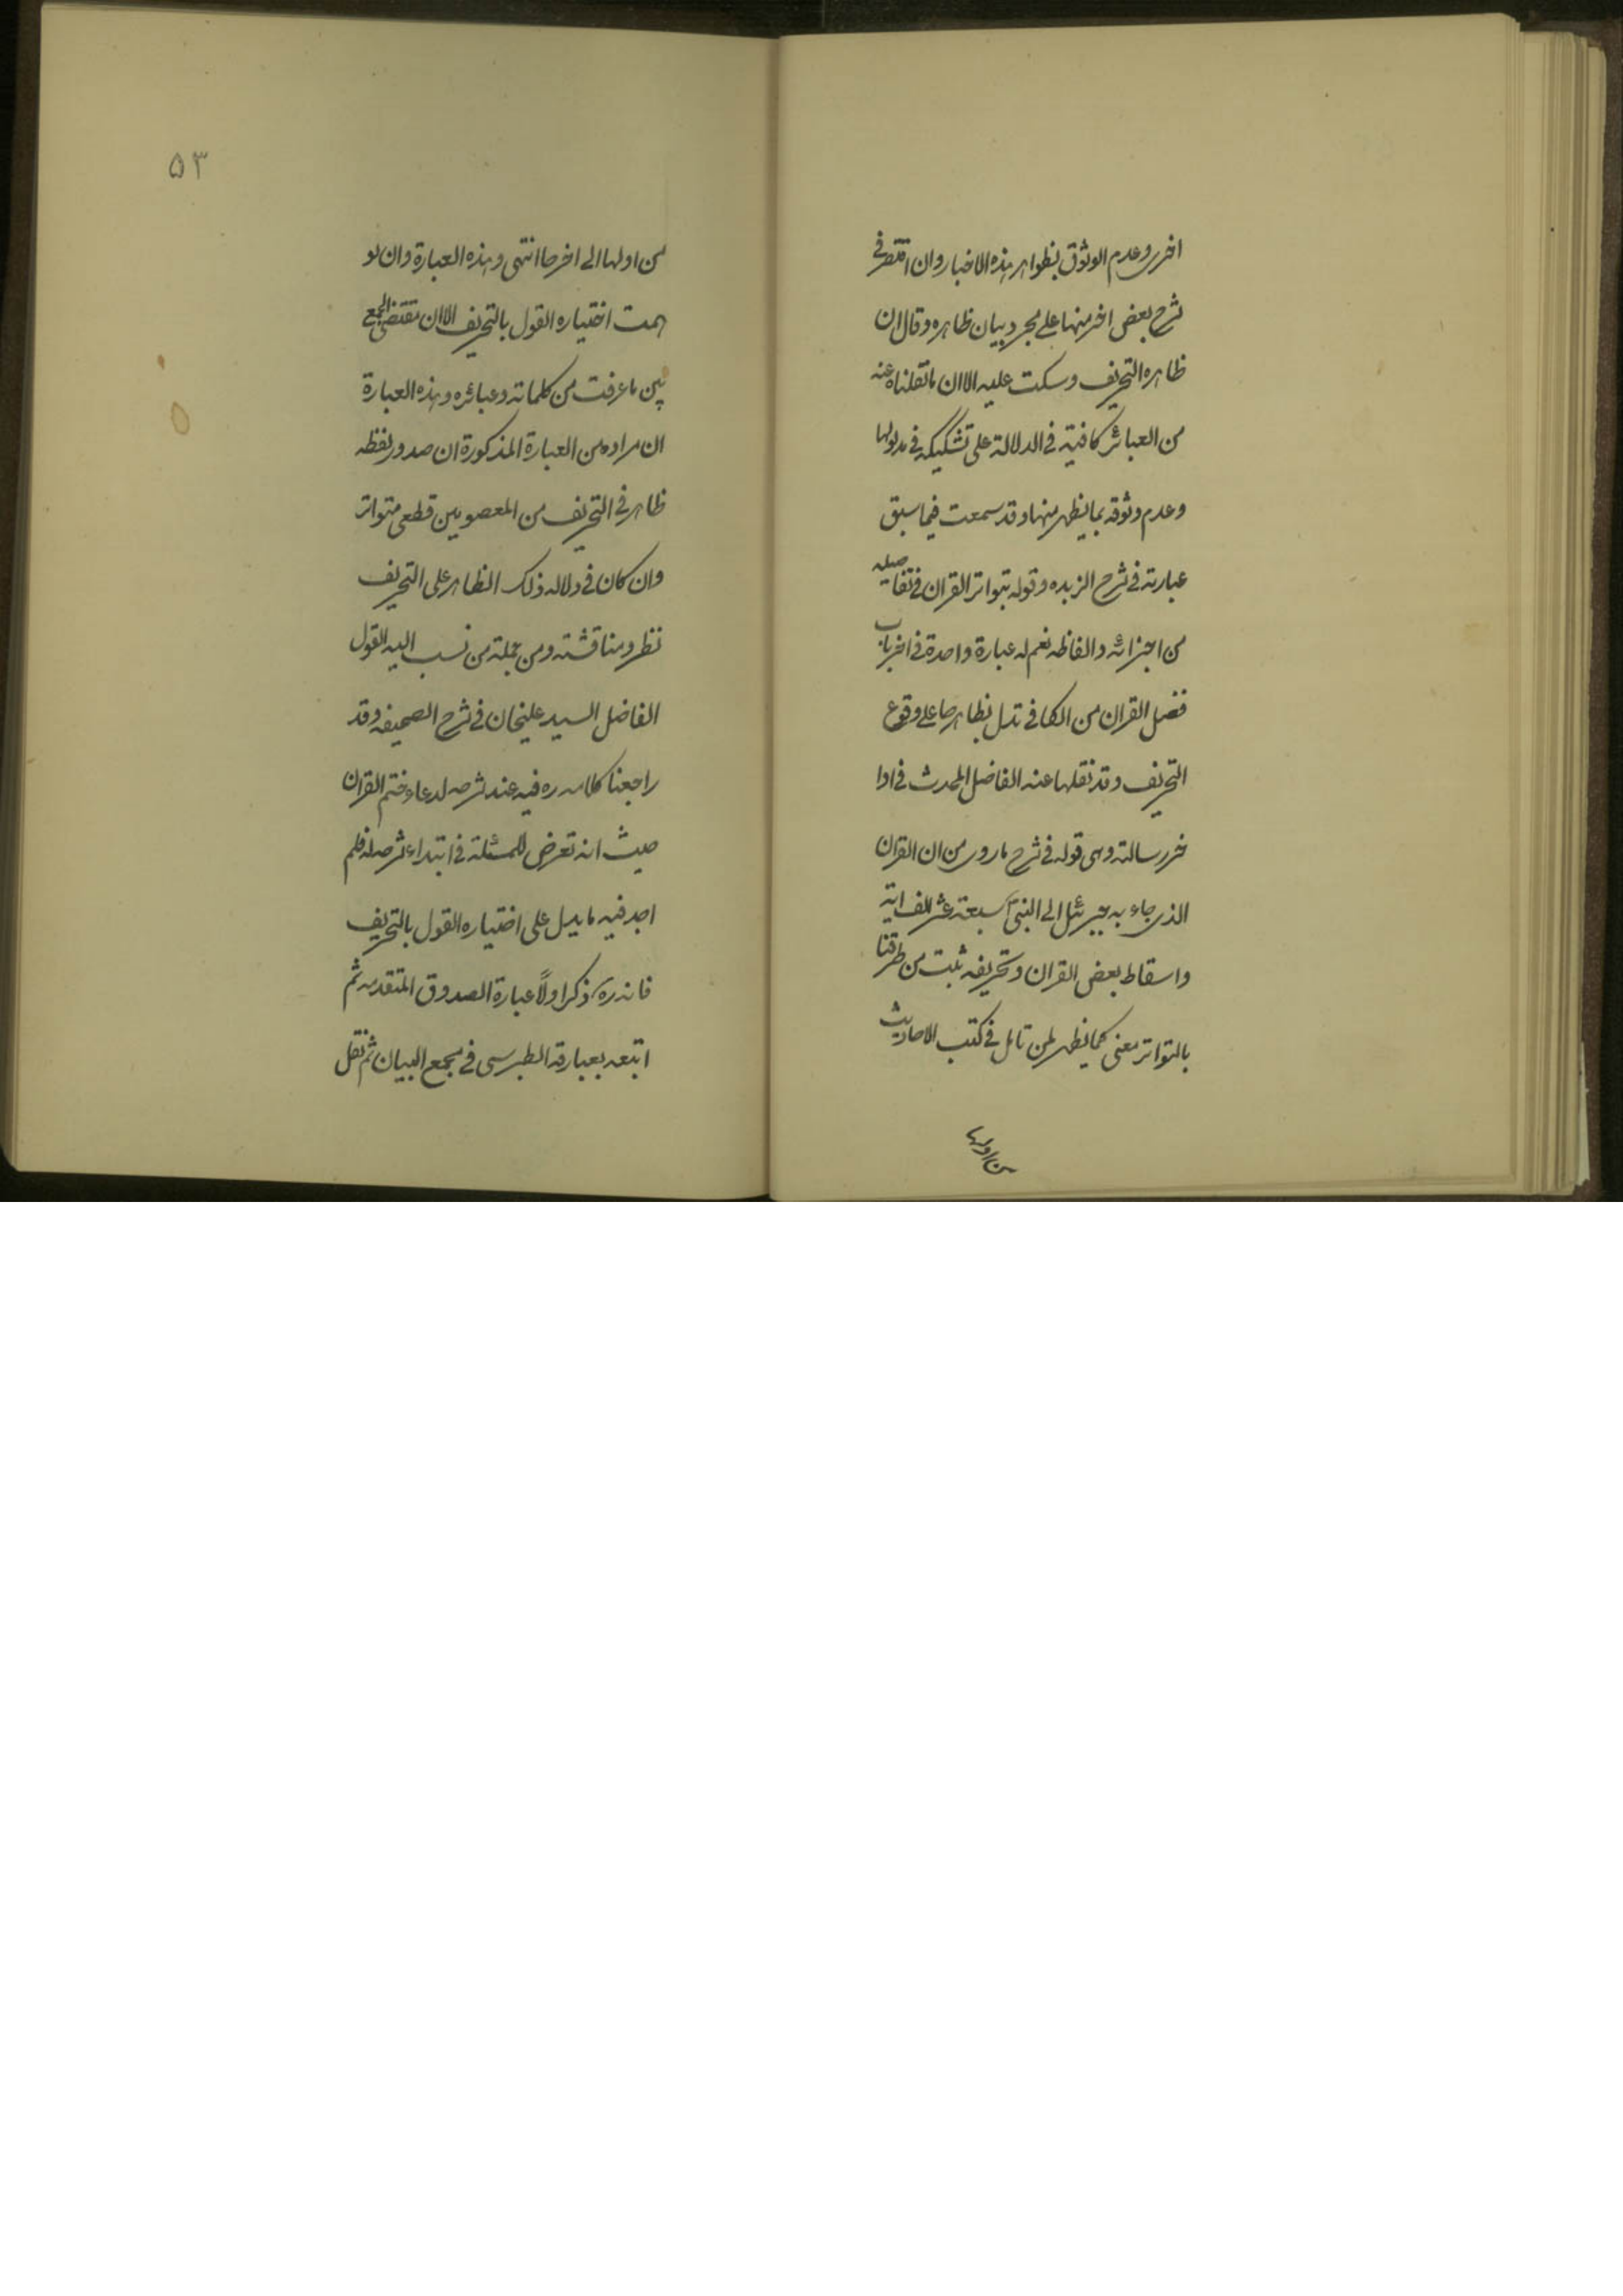 اخرى وعدم الوثوق بظواهر هذه الاخبار وان اقتصر فى
شرح بعض اخر منها على مجرد بيان ظاهره وقال ان
ظاهره التحريف وسكت عليه الا ان ما نقلناه عنه
من العبائر كافية فى الدلالة على تشكيكه فى مدلولها
وعدم وثوقه بما يظهر منها وقد سمعت فيما سبق
عبارته فى شرح الزبده وقوله بتواتر القران فى تفاصيله
من اجزائه والفاظه نعم له عبارة واحدة فى اخر باب
فضل القران من الكافى تدل بظاهرها على وقوع
التحريف وقد نقلها عنه الفاضل المحدث فى اوا
خر رسالته وهى قوله فى شرح ما روى من ان القران
الذى جاء به جبرئيل الى النبى سبعة عشر الف اية
واسقاط بعض القران وتحريفه ثبت من طرقنا
بالتواتر معنى كما يظهر لمن تامل فى كتب الاحاديث
من اولها
۵۳
من اولها الى اخرها انتهى وهذه العبارة وان او
همت اختياره القول بالتحريف الا ان مقتضى الجمع
بين ما عرفت من كلماته وعبائره وهذه العبارة
ان مراده من العبارة المذكورة ان صدور لفظه
ظاهر فى التحريف من المعصومين قطعى متواتر
وان كان فى دلاله ذلك الظاهر على التحريف
نظر ومناقشته ومن جملة من نسب اليه القول
الفاضل السيد عليخان فى شرح الصحيفه وقد
راجعنا كلامه ره فيه عند شرحه لدعاء ختم القران
حيث انه تعرض للمسئلة فى ابتداء شرحه له فلم
اجد فيه ما يدل على اختياره القول بالتحريف
فانه ره ذكر اولاً عبارة الصدوق المتقدمه ثم
اتبعه بعبارة الطبرسى فى مجمع البيان ثم نقل